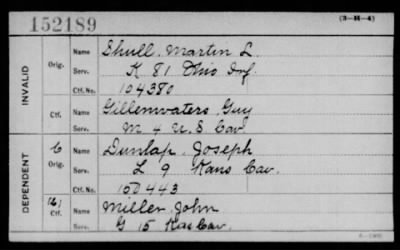 152189
(3-M-4)
INVALID
Orig.
Name Shull, Martin L.
Serv. K 81 Ohio Inf.
Ctf. No. 104380
Ctf.
Name Gillenwaters, Guy
Serv. M 4 U.S. Cav.
DEPENDENT
C
Orig.
Name Dunlap, Joseph
Serv. L 9 Kans Cav.
Ctf. No. 150443
Ctf.
Name Miller, John
G 15 Kas Cav.